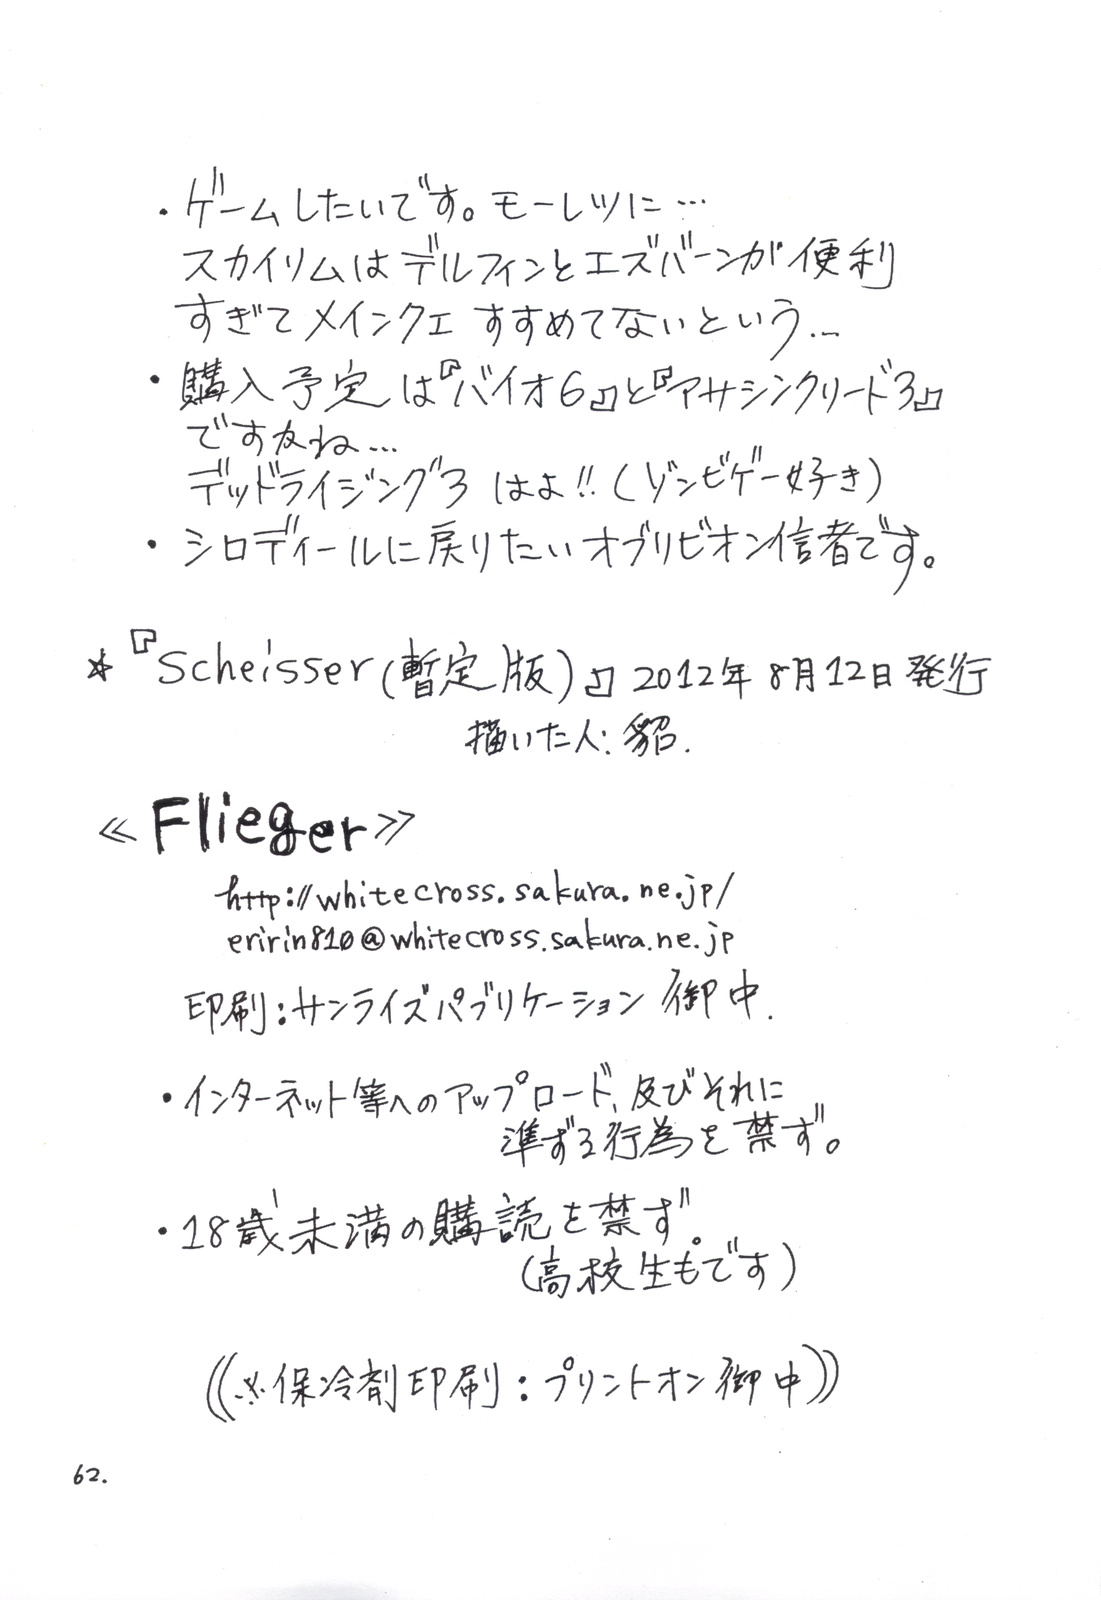 ・ゲームしたいです。モーレツに…
スカイリムはデルフィンとエズバーンが便利
すぎてメインクエすすめてないという…
・購入予定は『バイオ6』と『アサシンクリード3』
ですかね…
デッドライジング3はよ!!(ゾンビゲー好き)
・シロディールに戻りたいオブリビオン信者です。
☆『Scheisser(暫定版)』2012年8月12日発行
描いた人:貂.
≪Flieger≫
http://whitecross.sakura.ne.jp/
eririn810@whitecross.sakura.ne.jp
印刷:サンライズパブリケーション御中.
・インターネット等へのアップロード、及びそれに
準ずる行為を禁ず。
・18歳未満の購読を禁ず。
(高校生もです)
((※保冷剤印刷:プリントオン御中))
62.